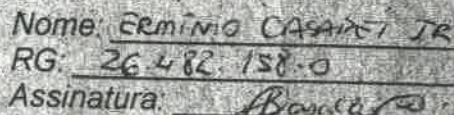 Nome: ERMÍNIO CASADEI JR
RG: 26.482.158-0
Assinatura: